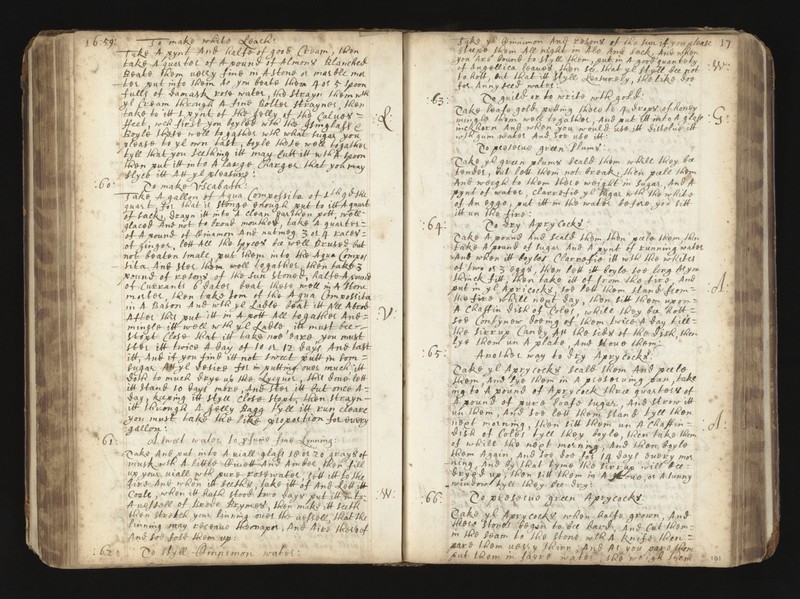 16:59: To make white Leach:
Take A pynt And halfe of good Cream, then
take A quarter of A pound of Almons Blanched
Beate them uery fine in A stone or marble mor
ter put into them As you beate them 4 or 5 spoon
fulls of Damask rose water, the strayn them wth
ye Cream through A fine Bolter strayner, then
take to itt 1 pynt of the Jelly of the Calues
feet, wch first you boyled with the Isinglass
Boyle these well togather with what sugar you
please to yr own tast, boyle these well togather
tyll that you seething itt may Cutt itt wth A spoon
then put itt into A Large Charger that you may
slyce itt Att yr pleasure:
:60: To make Vscabath:
Take A gallon of Aqua Composita of the
quart, for that is stonge Enough put to itt A quart
of sack, drayn itt into A Clean earthen pott, well
glaced And not to broad mouthed, take A quarter
of A pound of Cinamon And nutmeg 3 or 4 races
of ginger, lett All the spyces be well Brused but
not beaten small, put them into the Aqua Compos
sita And ster them well togather, then take 3
pound of resons of the sun stoned, halfe A pound
of Currants 6 dates beat these well in A stone
morter, then take som of the Aqua Composita
in A Bason And wth ye Ladle beat itt All Abroad
After this put itt in A pott All togather And
mingle itt well wth ye Ladle, itt must bee
stopt Close that itt take noe ayre you must
ster itt twice A day of 10 or 12 days And tast
itt, And if you find itt not sweet putt in som
sugar Att yr desier for in putting ouer much itt
doth to much drye up the Lycquer, this done lett
itt stand 10 days more, And ster itt but once A
day, keping itt styll Close stopt, then strayn
itt through A Jelly Bagg tyll itt run cleare
you must take the like proportion for euery
gallon:
61: A sweet water to perfume fine Linning:
Take And put into A uiall glass 18 or 20 grayns of
musk wth A little Ciuet And Amber, then fill
up your uiall with pure rosewater, sett itt to the
fire And when itt seeths, take itt of And Lett itt
Coole, when itt hath stood two days put itt into
A uessell of broad Brymes, then make itt seeth
then stretch your Linning ouer the uessell, that the
Linning may receaue the uapor, And Aire thereof
And soe fold them up:
:62: To styll Cinnimon water:
L
V
W
17
Take ye Cinnimon And resons of the sun if you please
steepe them All night in Ale And sack, And when
you are bound to styll them, put in A good quantety
of Angellica leaues, then see that ye styll bee not
to hott, but that itt styll Leasurely, the like doe
for Annyseed water.
:63: To guild or to write with gold:
Take leafe gold, puding thereto 4 drops of honey
mingle them well togather, And put itt into A glass
inckhorn And when you would use itt dissolue itt
with gum water And soe use itt:
To preserue green Plums:
Take ye green plums scald them while they be
tender, but lett them not break, then pale them
And weigh to them there weight in sugar, And A
pynt of water, Clarrefie ye sugar with the white
of An egge, put itt in the water before you sitt
itt on the fire:
:64: To dry Aprycocks.
Take A pound And scald them, then peele them, then
take A pound of sugar And A pynt of running water
And when itt boyles Clarrefie itt wth the whites
of two or 3 eggs, then lett itt boyle soe long As you
think fitt, then take itt of from the fire, And
put in ye Apricocks, soe lett them stand from
the fire while next day, then sitt them upon
A Chaffin dish of Coles, while they be hott
soe Contynew doeing of them twice A day till
the sirrup Candy Att the sides of the dish, then
lye them on A plate, And stoue them:
:65: Another way to dry Aprycocks:
Take ye Aprycocks scald them And peele
them, And lye them in A preseruing pan, take
ing to A pound of Aprycock three quarters of
A pound of pure loafe sugar, And strow itt
on them, And soe lett them stand tyll then
next morning, then sitt them on A Chaffin
dish of Coles tyll they boyle, then take them
of while the next morning, And then boyle
them Again, And soe doe for 14 days euery mor
ning, And by that tyme the sirrup will bee
dryed up, then sitt them in A stoue, or A sunny
window tyll they bee dry:
:66: To preserue green Aprycocks
Take ye Aprycocks when halfe grown, And
there stones began to bee hard, And Cut them
in the seam to the stone wth A knife then
pare them uery thinn, And As you pare them
put them in fayre water, the weigh them
W
G
A
A
101